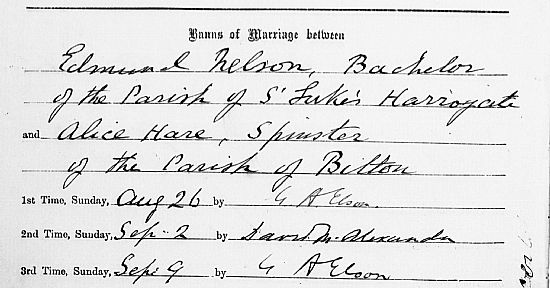 Banns of Marriage between
Edmund Nelson, Bachelor
of the Parish of St Luke's Harrogate
and Alice Hare, Spinster
of the Parish of Bilton
1st Time, Sunday, Aug 26 by G A Elson.
2nd Time, Sunday, Sep. 2 by David M. Alexander
3rd Time, Sunday, Sep. 9 by G A Elson